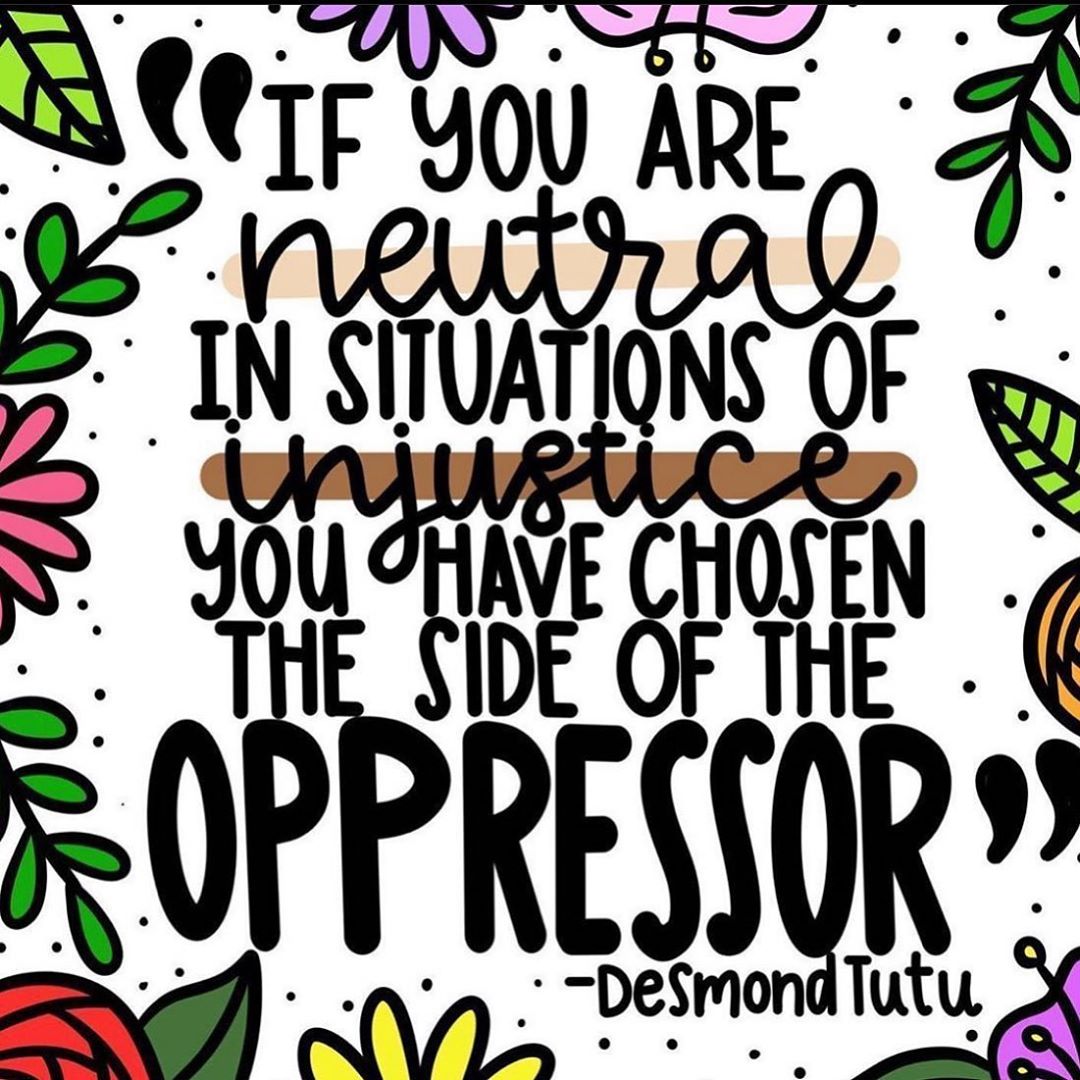 “IF YOU ARE
neutral
IN SITUATIONS OF
injustice
YOU HAVE CHOSEN
THE SIDE OF THE
OPPRESSOR”
-Desmond Tutu